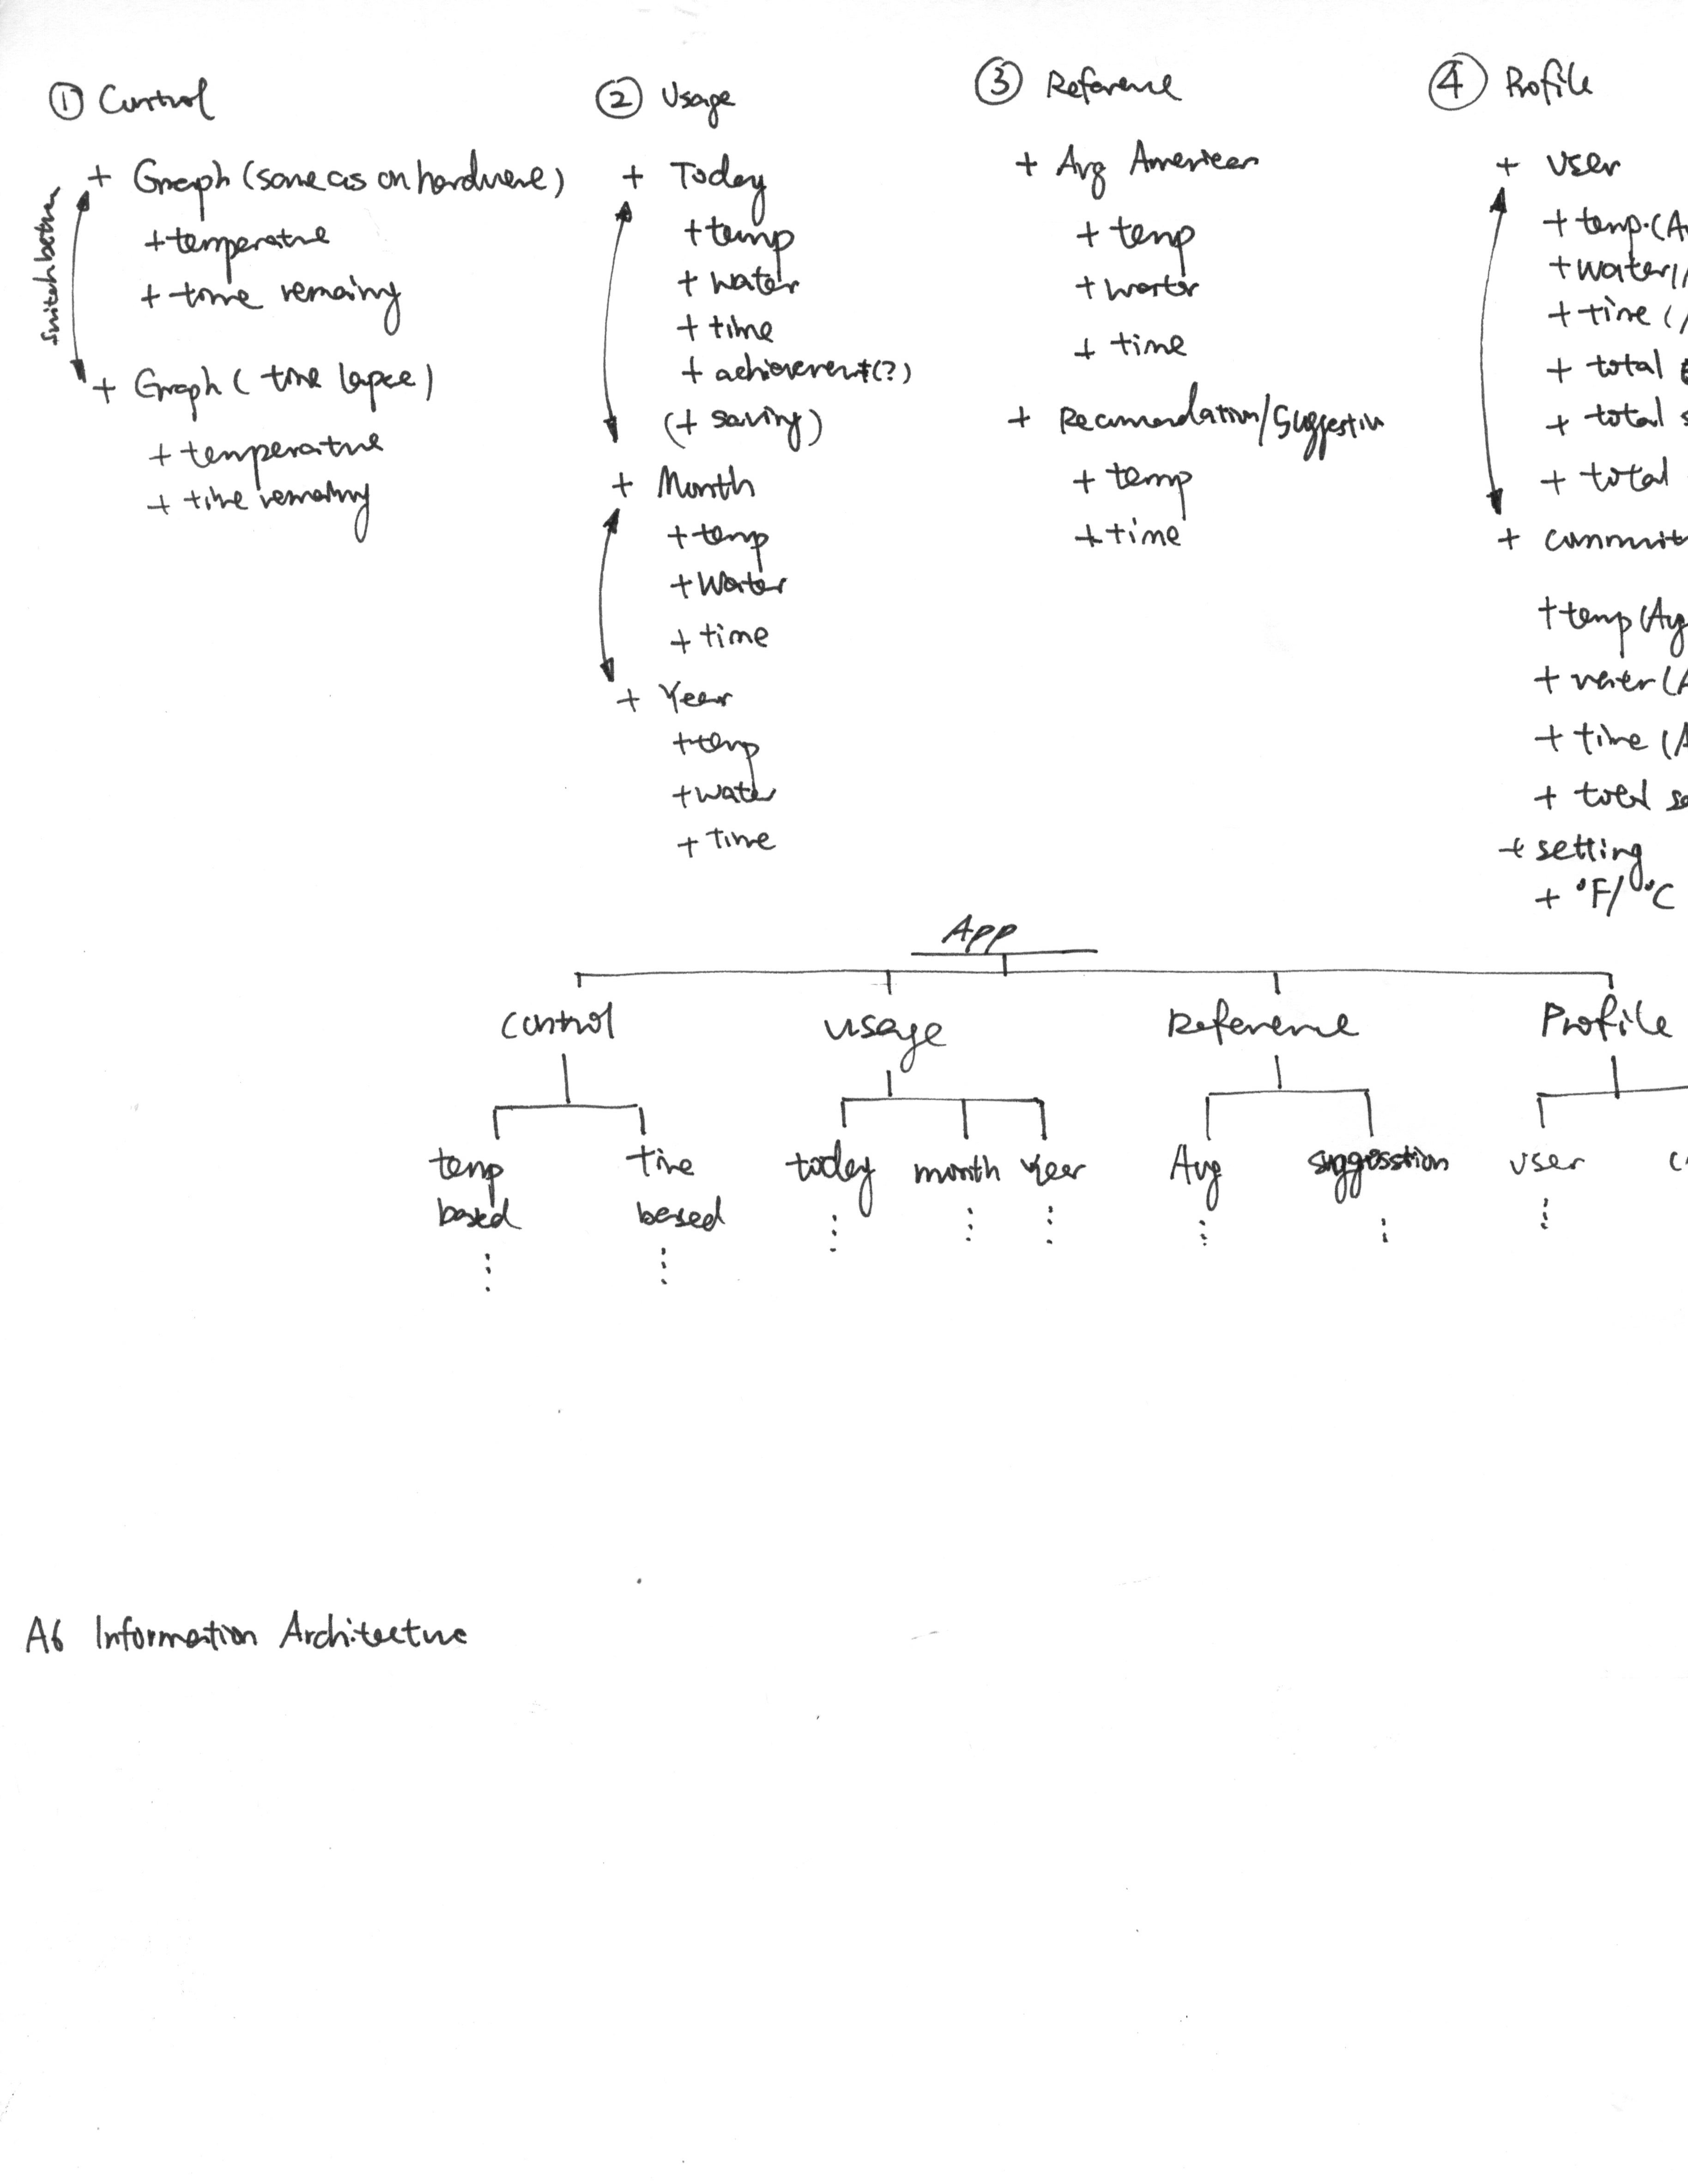 ① Control
switch between
+ Graph (same as on hardware)
+ temperature
+ time remaining
+ Graph ( time lapse )
+ temperature
+ time remaining
② Usage
+ Today
+ temp
+ water
+ time
+ achievement(?)
(+ saving)
+ Month
+ temp
+ Water
+ time
+ Year
+ temp
+ water
+ time
③ Reference
+ Avg American
+ temp
+ water
+ time
+ Recommendation/Suggestion
+ temp
+ time
④ Profile
+ User
+ temp. (A
+ water (
+ time (
+ total
+ total s
+ total
+ communit
+ temp (Avg
+ water (A
+ time (A
+ total sa
+ setting
+ °F/°C
App
Control Usage Reference Profile
temp based
time based
today month Year
Avg suggesstion
user c
A6 Information Architecture